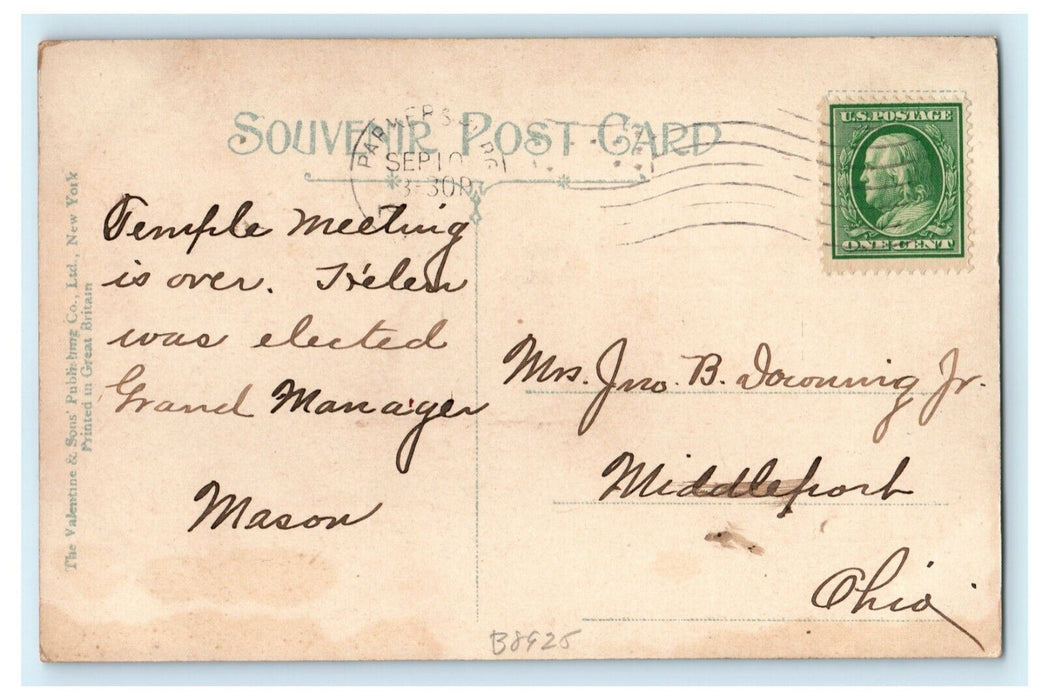 SOUVENIR POST CARD
PARKERSBURG
SEP 10
3-30P
U.S. POSTAGE
ONE CENT
The Valentine & Sons' Publishing Co., Ltd., New York
Printed in Great Britain
Temple Meeting
is over. Helen
was elected
Grand Manager
Mason
Mrs. Jno. B. Downing Jr.
Middleport
Ohio
B8925